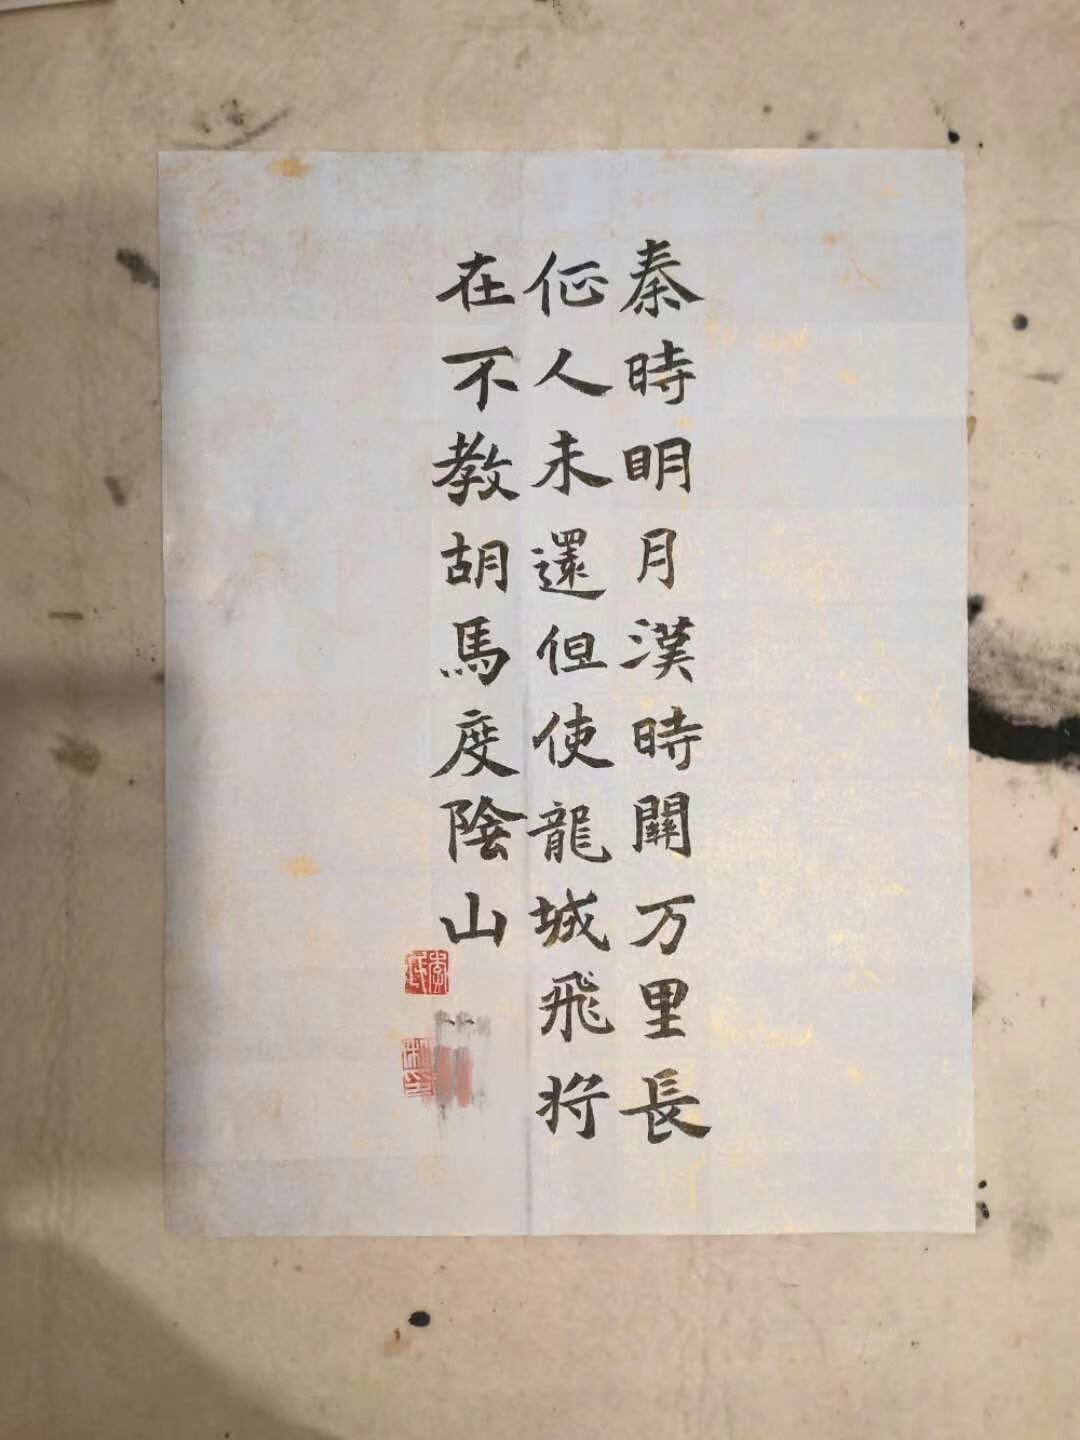 秦時明月漢時關万里長
佂人未還但使龍城飛将
在不教胡馬度陰山
李氏